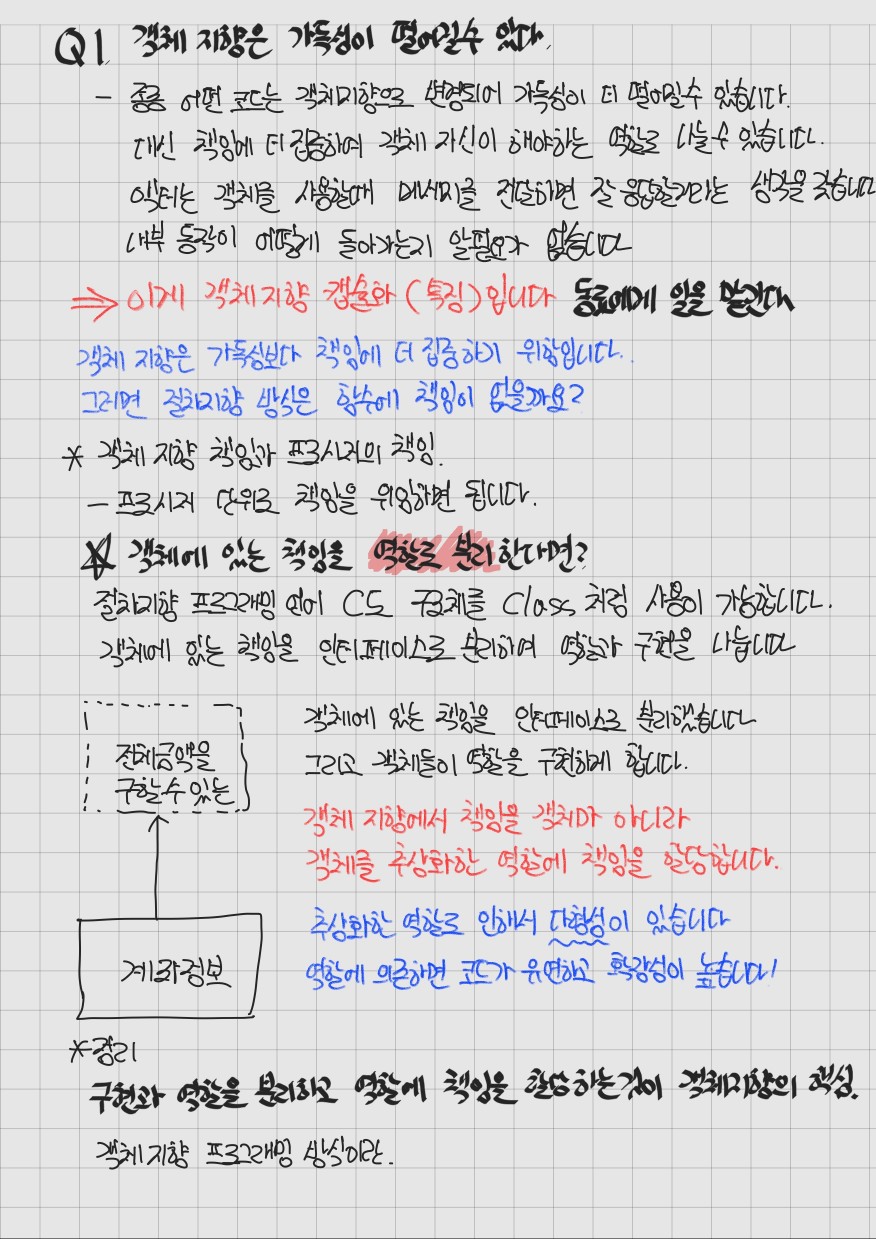 Q1. 객체 지향은 가독성이 떨어질수 있다.
- 종종 어떤 코드는 객체지향으로 변경되어 가독성이 더 떨어질수 있습니다.
대신 책임에 더 집중하여 객체 자신이 해야하는 역할로 나눌수 있습니다.
액터는 객체를 사용할때 메세지를 전달하면 잘 응답할거라는 생각을 갖습니다
내부 동작이 어떻게 돌아가는지 알필요가 없습니다
⇒ 이게 객체 지향 캡슐화 (특징) 입니다 동료에게 일을 맡긴다.
객체 지향은 가독성보다 책임에 더 집중하기 위함입니다..
그러면 절차지향 방식은 함수에 책임이 없을까요?
* 객체 지향 책임과 프로시저의 책임.
- 프로시저 단위로 책임을 위임하면 됩니다.
☆ 객체에 있는 책임을 역할로 분리한다면?
절차지향 프로그래밍 언어 C도 구조체를 Class 처럼 사용이 가능합니다.
객체에 있는 책임을 인터페이스로 분리하여 역할과 구현을 나눕니다
전체금액을
구할수 있는
계좌정보
객체에 있는 책임을 인터페이스로 분리했습니다
그리고 객체들이 역할을 구현하게 합니다.
객체 지향에서 책임을 객체가 아니라
객체를 추상화한 역할에 책임을 할당합니다.
추상화한 역할로 인해서 다형성이 있습니다
역할에 의존하면 코드가 유연하고 확장성이 높습니다!
* 정리
구현과 역할을 분리하고 역할에 책임을 할당하는것이 객체지향의 핵심.
객체 지향 프로그래밍 방식이란.